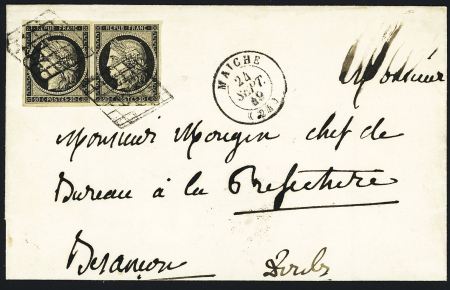 REPUB. FRANC. REPUB. FRANC.
20 C POSTES 20 C 20 C POSTES 20 C
MAICHE
24
SEPT.
49
(24)
Monsieur
Monsieur Mougin chef de
Bureau à la Préfecture
Besançon Doubs